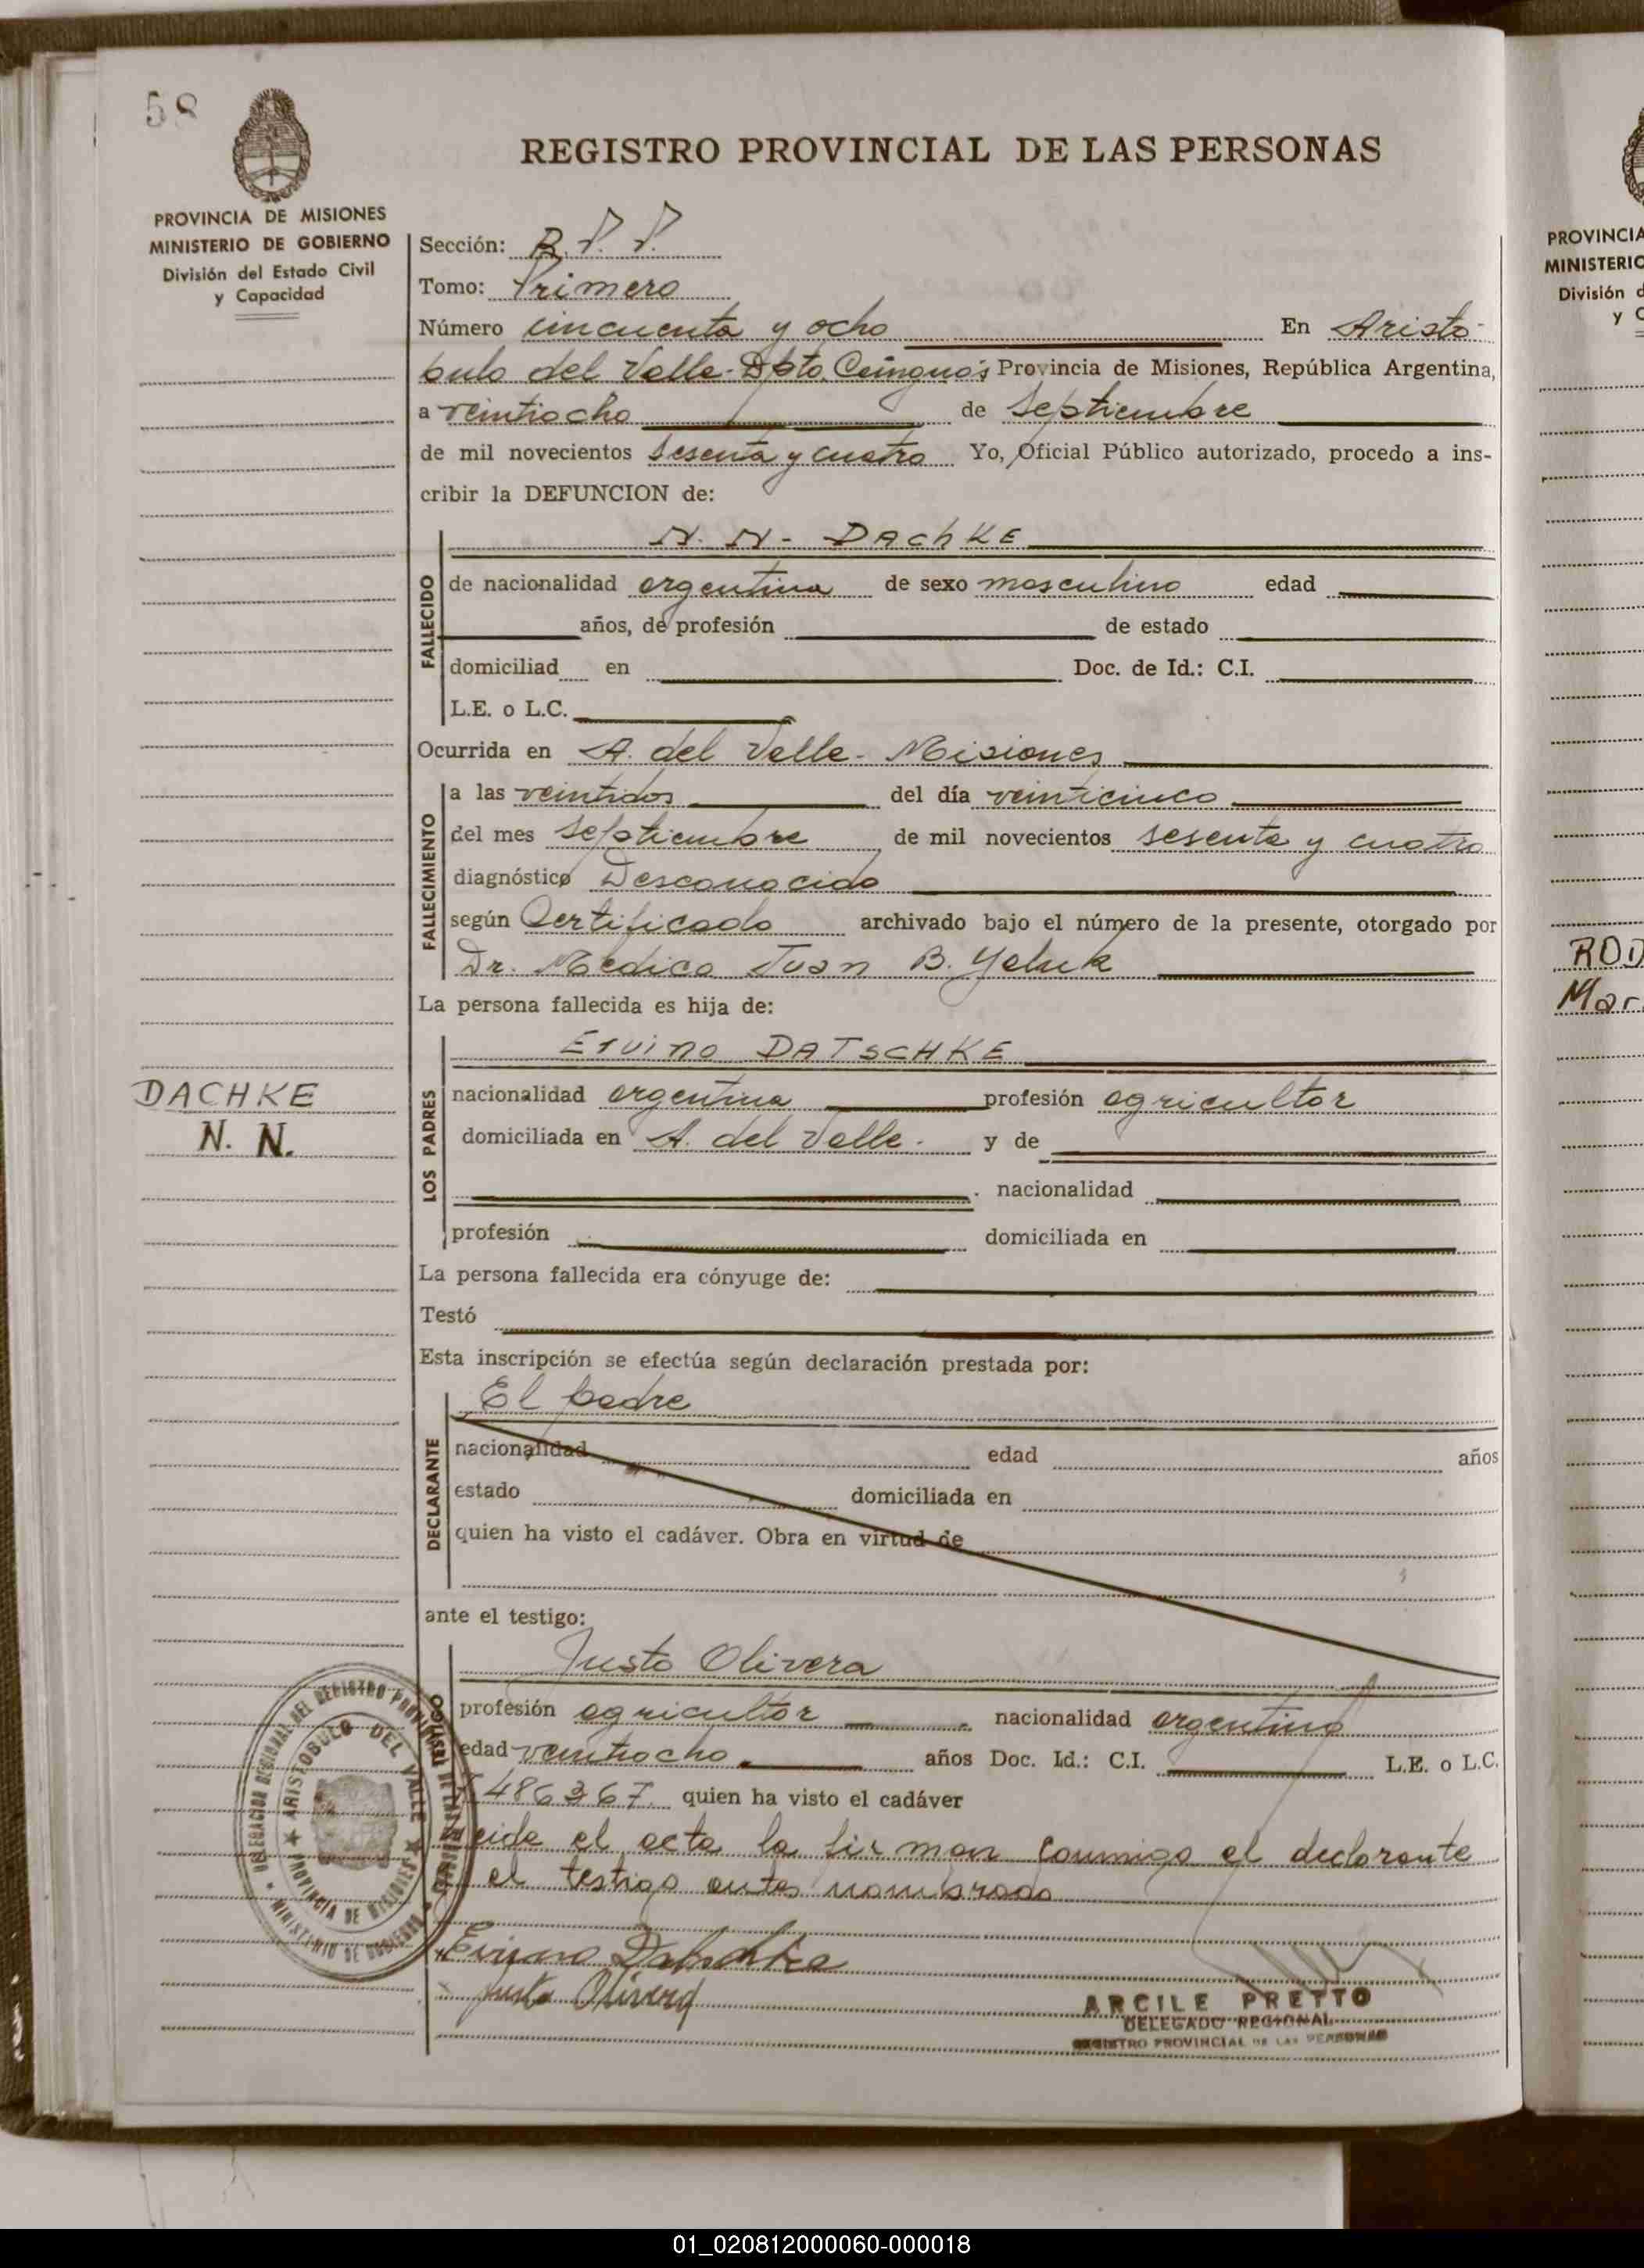 58
REGISTRO PROVINCIAL DE LAS PERSONAS
PROVINCIA DE MISIONES
MINISTERIO DE GOBIERNO
División del Estado Civil
y Capacidad
Sección: R. P. P.
Tomo: Primero
Número cincuenta y ocho En Aristo-
bulo del Valle - Dpto. Cainguás Provincia de Misiones, República Argentina,
a veintiocho de septiembre
de mil novecientos sesenta y cuatro Yo, Oficial Público autorizado, procedo a ins-
cribir la DEFUNCION de:
N. N - DAchKE
FALLECIDO
de nacionalidad argentina de sexo masculino edad
años, de profesión de estado
domiciliad en Doc. de Id.: C.I.
L.E. o L.C.
Ocurrida en A. del Valle - Misiones
FALLECIMIENTO
a las veintidos del día veinticinco
del mes septiembre de mil novecientos sesenta y cuatro
diagnóstico Desconocido
según Certificado archivado bajo el número de la presente, otorgado por
Dr. Medico Juan B.
La persona fallecida es hija de:
LOS PADRES
Ervino DATSCHKE
nacionalidad argentina profesión agricultor
domiciliada en A. del Valle. y de
nacionalidad
profesión domiciliada en
DACHKE
N. N.
La persona fallecida era cónyuge de:
Testó
Esta inscripción se efectúa según declaración prestada por:
DECLARANTE
El padre
nacionalidad edad años
estado domiciliada en
quien ha visto el cadáver. Obra en virtud de
ante el testigo:
TESTIGO
Justo Olivera
profesión agricultor nacionalidad argentina
edad veintiocho años Doc. Id.: C.I. L.E. o L.C.
486367. quien ha visto el cadáver
el acta la firman conmigo el declarante
el testigo antes nombrado
Justo Olivera
ARCILE PRETTO
DELEGADO REGIONAL
REGISTRO PROVINCIAL DE LAS PERSONAS
DELEGACION REGIONAL DEL REGISTRO PROVINCIAL DE LAS PERSONAS
ARISTOBULO DEL VALLE
PROVINCIA DE MISIONES
MINISTERIO DE GOBIERNO
PROVINCIA
MINISTERIO
División d
y C
ROD
Mar
01_020812000060-000018